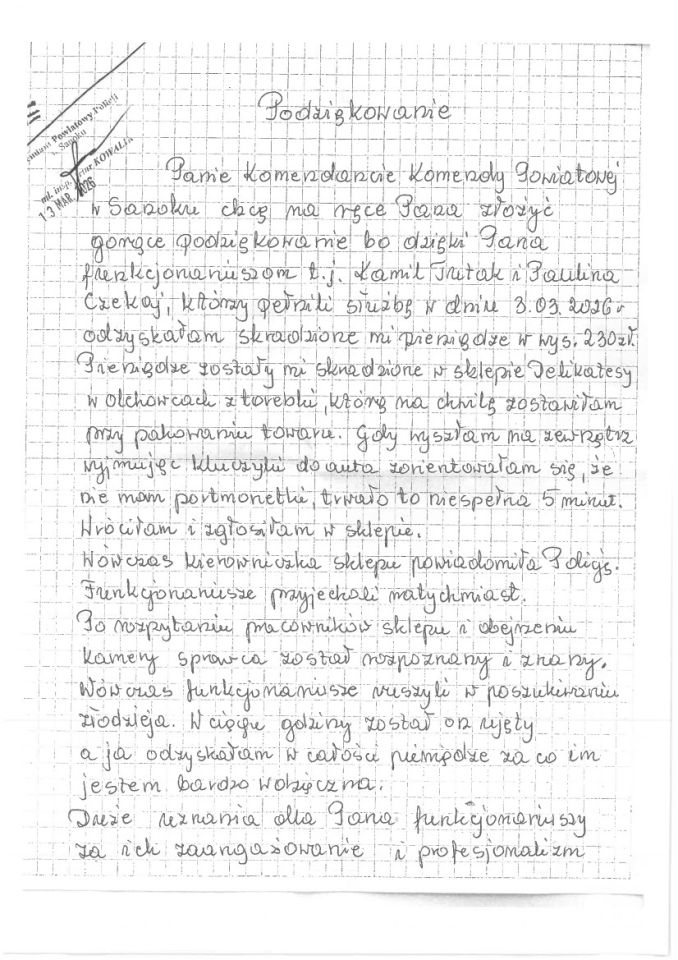 Komendant Powiatowy Policji
w Sanoku
mł. insp. Artur KOWALIK
13 MAR. 2026
Podziękowanie
Panie Komendancie Komendy Powiatowej
w Sanoku chcę na ręce Pana złożyć
gorące podziękowanie bo dzięki Pana
funkcjonariuszom t.j. Kamil Trutak i Paulina
Czekaj, którzy pełnili służbę w dniu 3.03.2026 r
odzyskałam skradzione mi pieniądze w wys. 230 zł.
Pieniądze zostały mi skradzione w sklepie Delikatesy
w Olchowcach z torebki, którą na chwilę zostawiłam
przy pakowaniu towaru. Gdy wyszłam na zewnątrz
wyjmując kluczyki do auta zorientowałam się, że
nie mam portmonetki, trwało to niespełna 5 minut.
Wróciłam i zgłosiłam w sklepie.
Wówczas kierowniczka sklepu powiadomiła Policję.
Funkcjonariusze przyjechali natychmiast.
Po rozpytaniu pracowników sklepu i obejrzeniu
kamery sprawca został rozpoznany i znany.
Wówczas funkcjonariusze ruszyli w poszukiwaniu
złodzieja. W ciągu godziny został on ujęty
a ja odzyskałam w całości pieniądze za co im
jestem bardzo wdzięczna.
Duże uznania dla Pana funkcjonariuszy
za ich zaangażowanie i profesjonalizm